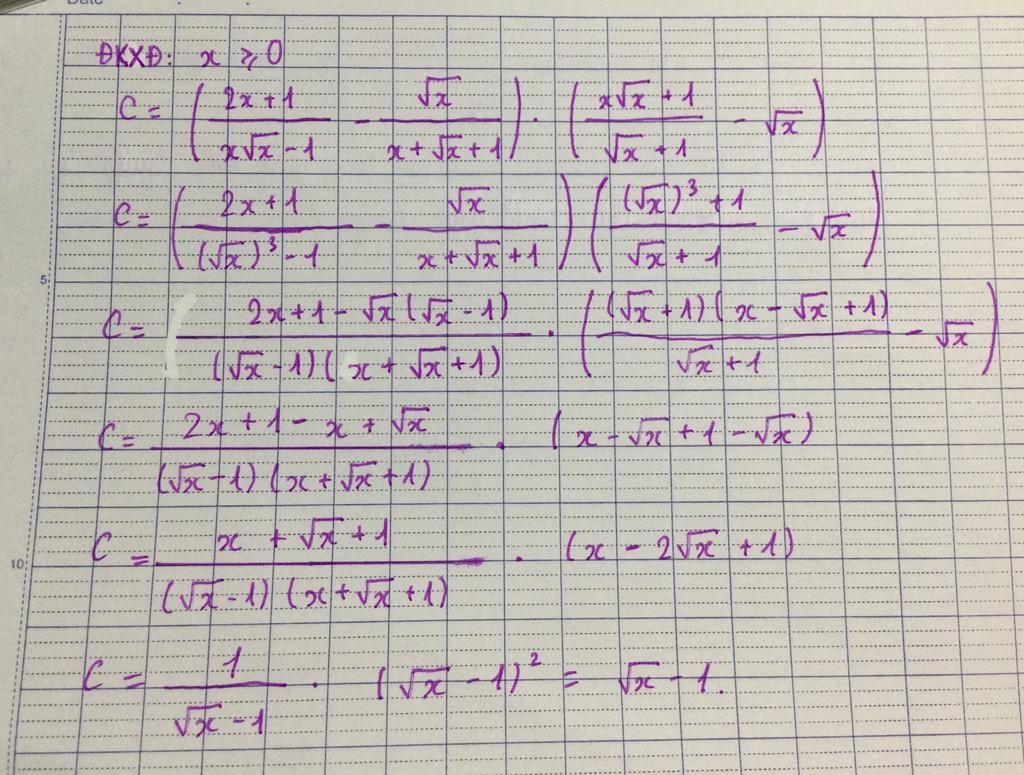 Date
ĐKXĐ: x ≥ 0
C = ( (2x+1)/(x√x - 1) - √x/(x + √x + 1) ) . ( (x√x + 1)/(√x + 1) - √x )
C = ( (2x+1)/((√x)³ - 1) - √x/(x + √x + 1) ) ( ((√x)³ + 1)/(√x + 1) - √x )
5
C = (2x+1 - √x(√x - 1))/((√x - 1)(x + √x + 1)) . ( ((√x + 1)(x - √x + 1))/(√x + 1) - √x )
C = (2x + 1 - x + √x)/((√x - 1)(x + √x + 1)) . (x - √x + 1 - √x)
10
C = (x + √x + 1)/((√x - 1)(x + √x + 1)) . (x - 2√x + 1)
C = 1/(√x - 1) . (√x - 1)² = √x - 1.